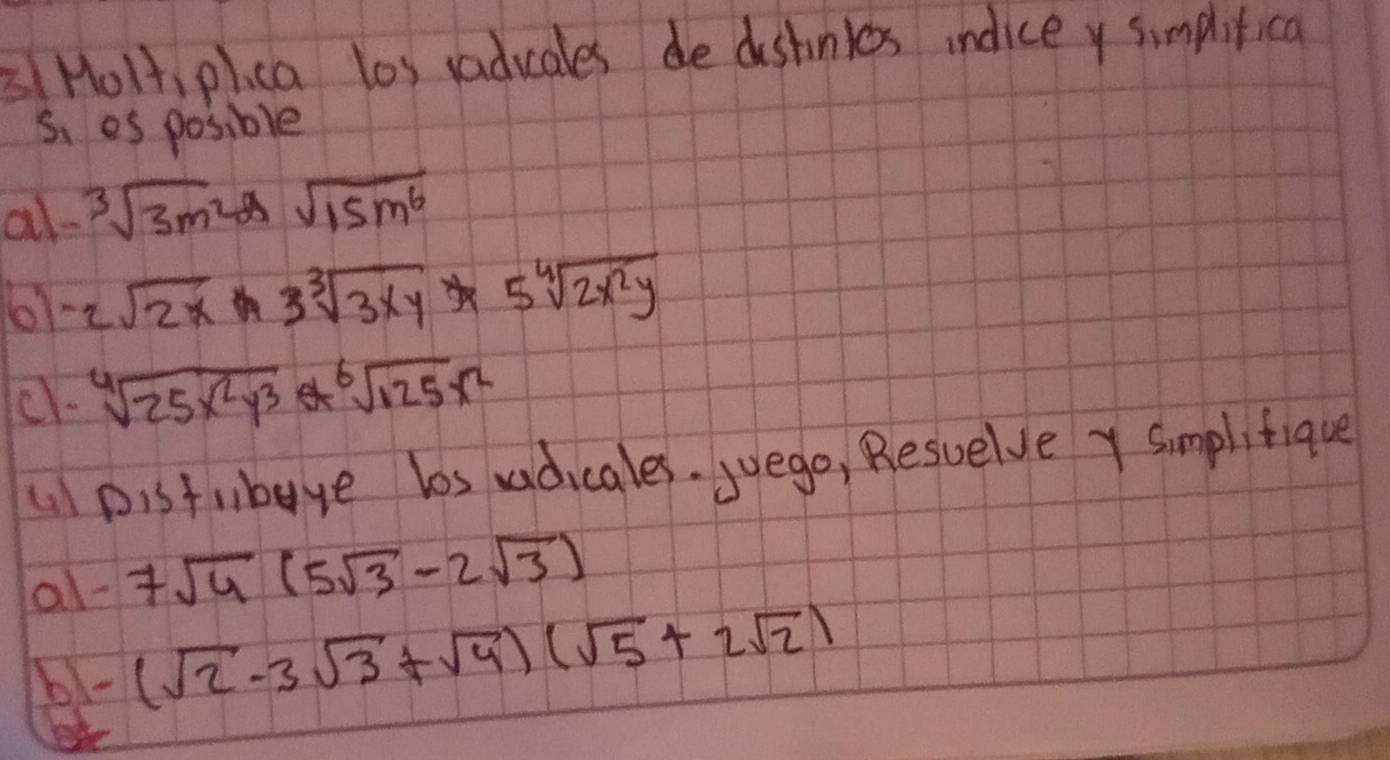 3) Moltiplica los radicales de distintos indice y simplifica
si es posible
a)- ∛3m² * √15m⁶
b)- 2√2x * 3∛3xy * 5∜2x²y
c)- ∜25x²y³ * ⁶√125x²
4) Distribuye los radicales. Juego, Resuelve y simplifique
a)- 7√4 (5√3 - 2√3)
b)- (√2 - 3√3 + √4) (√5 + 2√2)